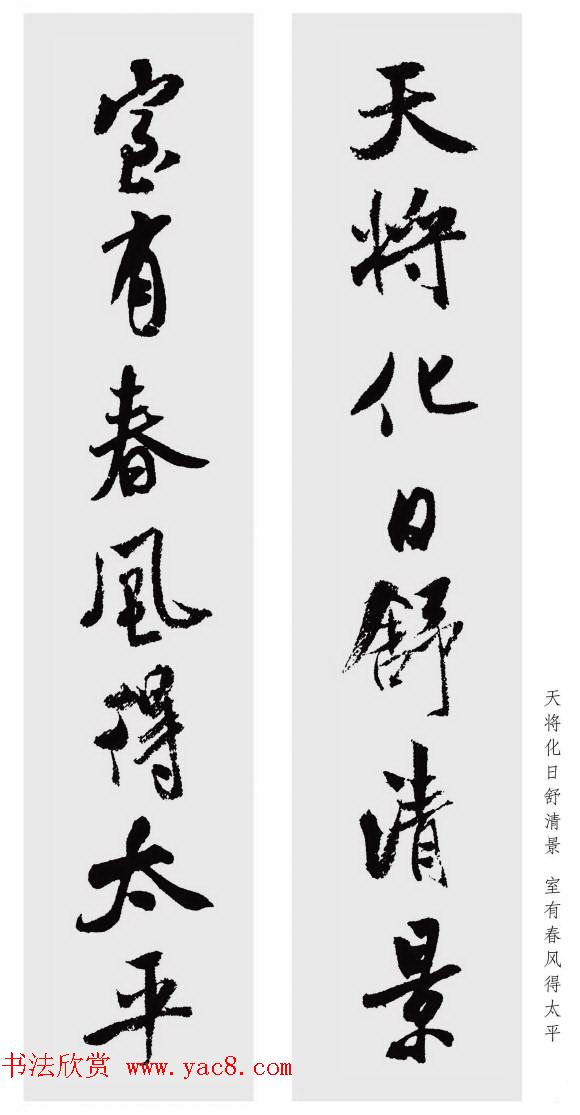 天将化日舒清景
室有春风得太平
天将化日舒清景　室有春风得太平
书法欣赏 www.yac8.com